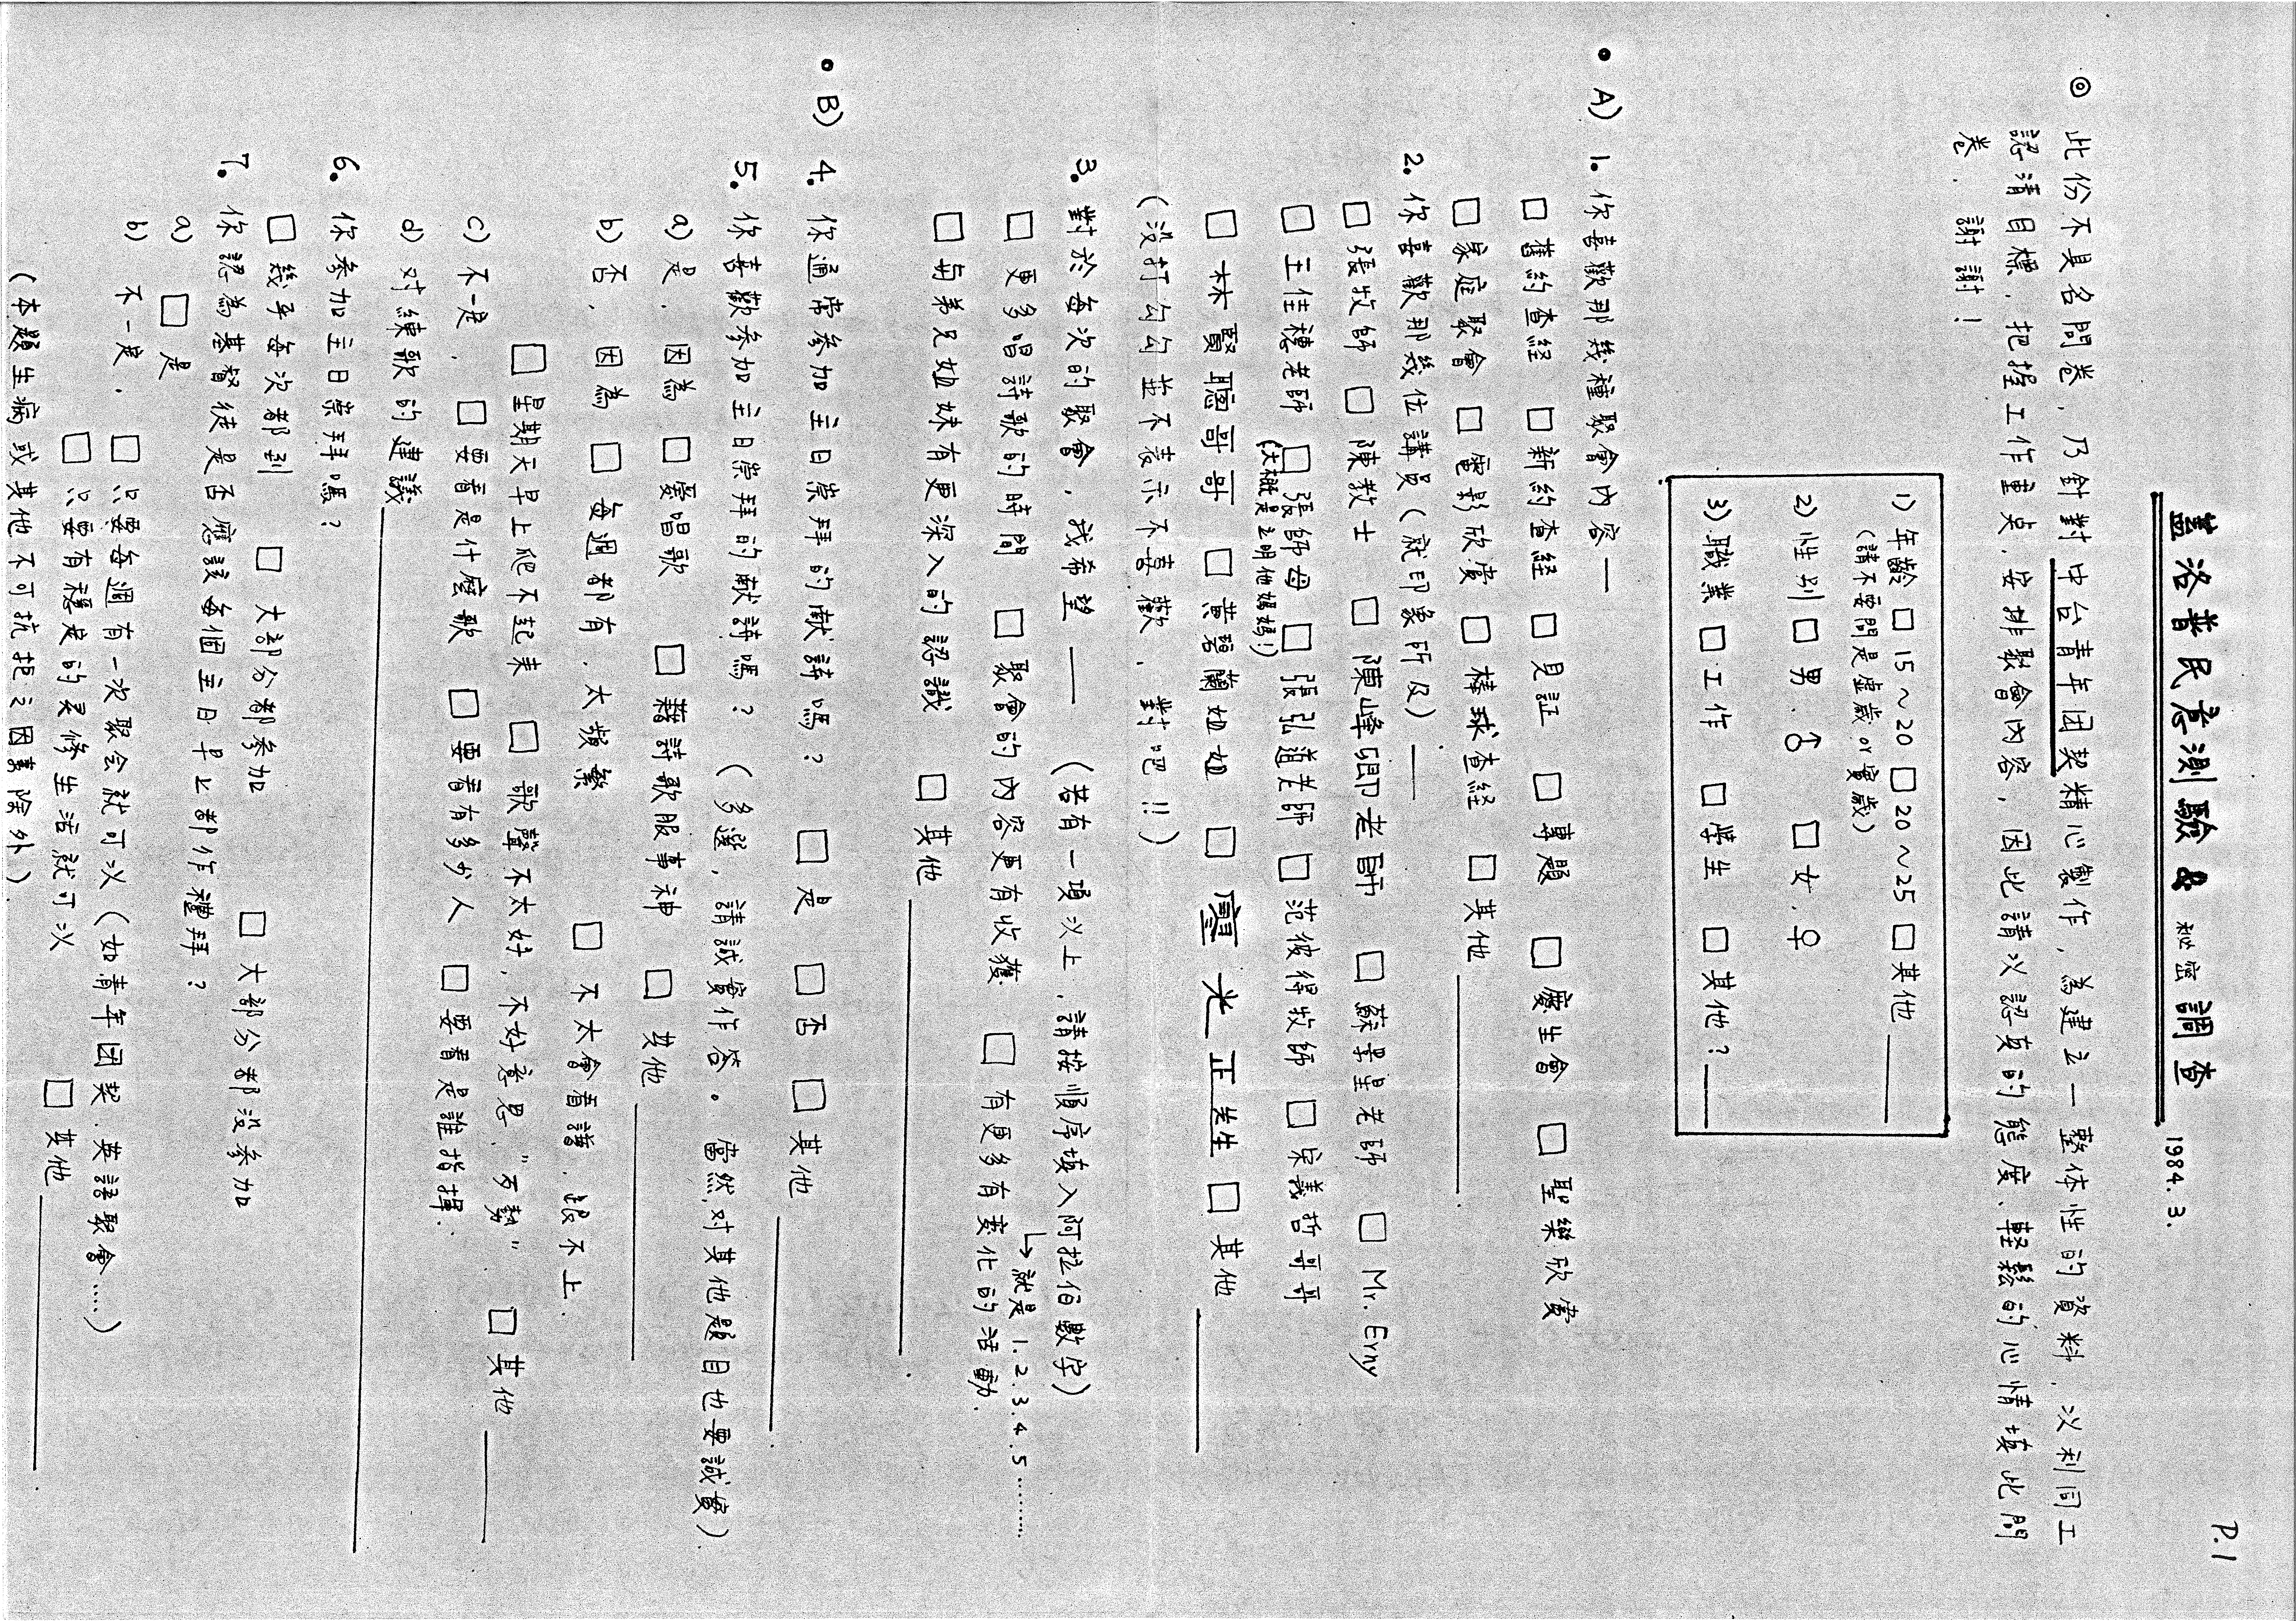 P.1
蓋洛普民意測驗 & 秘密調查 1984.3.
◎ 此份不具名問卷，乃針對中台青年团契精心製作，為建立一整体性的資料，以利同工
認清目標，把握工作重点，安排聚會內容，因此請以認真的態度、輕鬆的心情填此問
卷．謝謝！
1) 年齡 □ 15～20 □ 20～25 □ 其他
(請不要問是虛歲 or 實歲)
2) 性別 □ 男．♂ □ 女．♀
3) 職業 □ 工作 □ 學生 □ 其他？
• A) 1. 你喜歡那幾種聚會內容—
□ 舊約查経 □ 新約查経 □ 見証 □ 專題 □ 慶生會 □ 聖樂欣賞
□ 家庭聚會 □ 電影欣賞 □ 棒球查経 □ 其他
2. 你喜歡那幾位講員(就印象所及)——
□ 張牧師 □ 陳教士 □ 陳峰明老師 □ 蘇景星老師 □ Mr. Erny
□ 王佳穗老師 □ 張師母 □ 張弘道老師 □ 范彼得牧師 □ 宋義哲哥哥
(大概是立明他媽媽!)
□ 林賢聰哥哥 □ 黃碧蘭姐姐 □ 光正先生 □ 其他
(没打勾勾並不表示不喜歡，對吧!!)
3. 對於每次的聚會，我希望—— (若有一項以上，請按順序填入阿拉伯數字)
↳ 就是 1.2.3.4.5………
□ 更多唱詩歌的時間 □ 聚會的內容更有收獲 □ 有更多有变化的活動．
□ 每弟兄姐妹有更深入的認識 □ 其他
• B) 4. 你通常參加主日崇拜的献詩嗎？ □ 是 □ 否 □ 其他
5. 你喜歡參加主日崇拜的献詩嗎？ (多選，請誠實作答。當然，对其他題目也要誠實)
a) 是，因為 □ 愛唱歌 □ 藉詩歌服事神 □ 其他
b) 否，因為 □ 每週都有，太頻繁 □ 不太會看譜，跟不上．
□ 星期天早上爬不起來 □ 歌聲不太好，不好意思"歹勢" □ 其他
c) 不一定． □ 要看是什麼歌 □ 要看有多少人 □ 要看是誰指揮．
d) 对練歌的建議
6. 你參加主日崇拜嗎？
□ 幾乎每次都到 □ 大部分都參加 □ 大部分都沒參加
7. 你認為基督徒是否應該每個主日早上都作禮拜？
a) □ 是
b) 不一定． □ 只要每週有一次聚会就可以(如青年团契．英語聚會……)
□ 只要有穩定的灵修生活就可以 □ 其他
(本題生病或其他不可抗拒之因素除外)